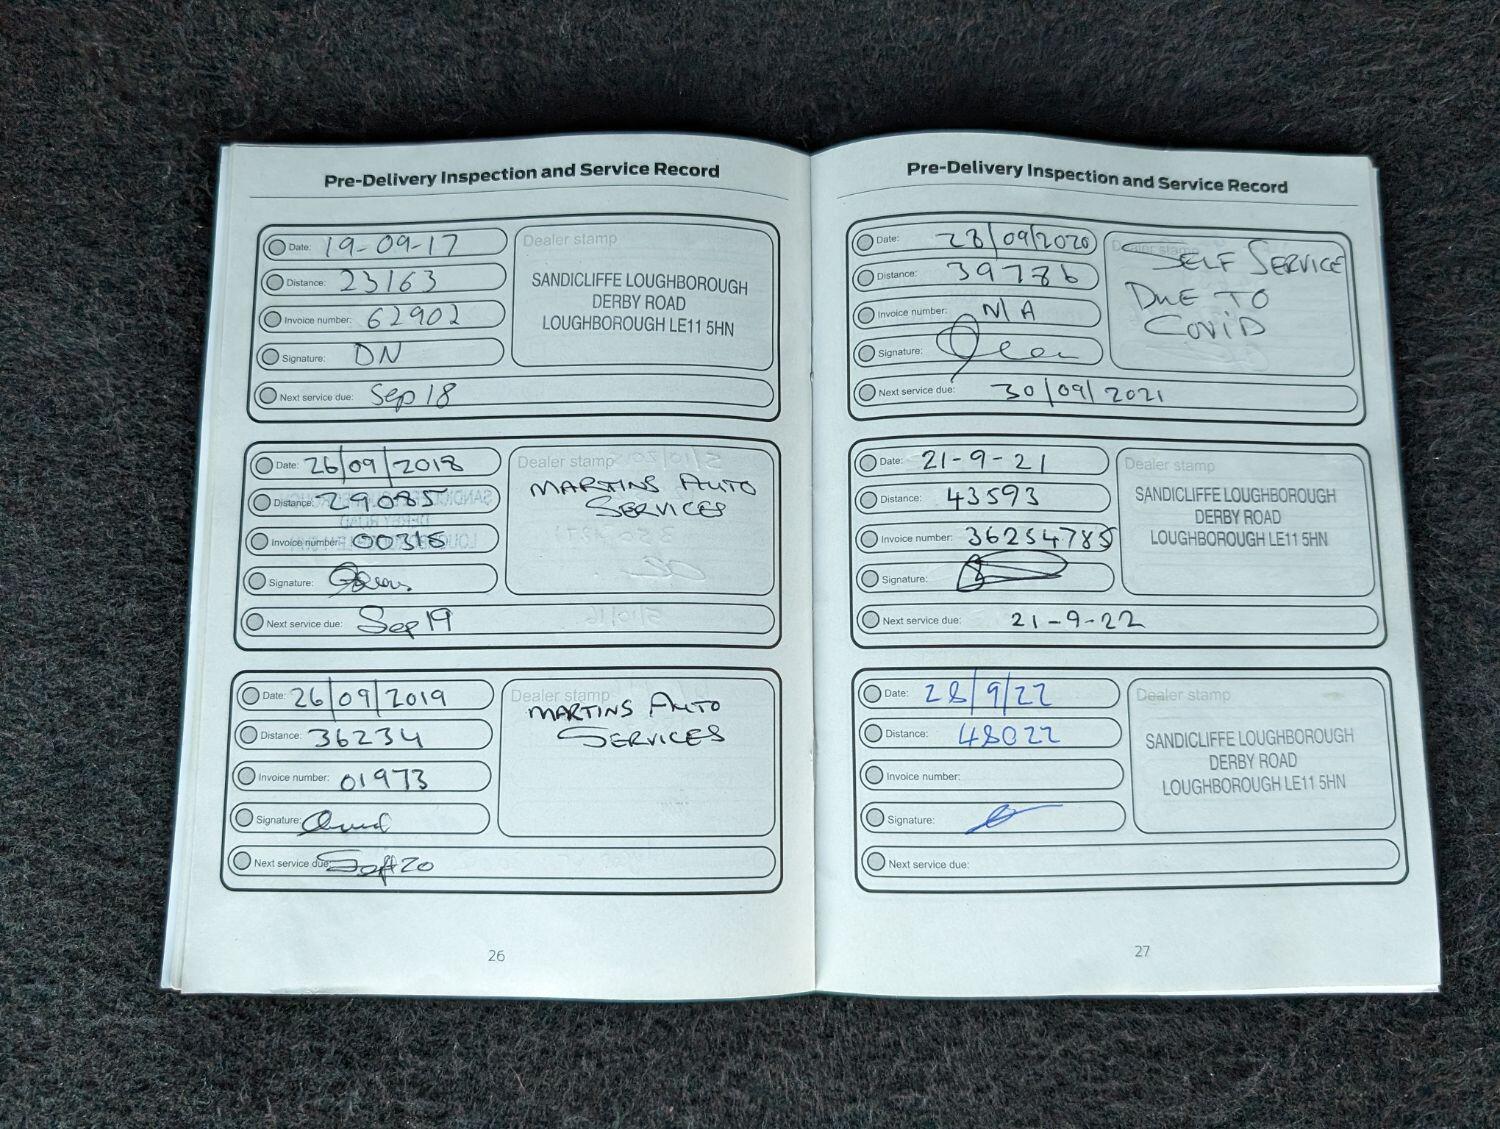 Pre-Delivery Inspection and Service Record
Date: 19-09-17
Distance: 23163
Invoice number: 62902
Signature: DN
Next service due: Sep 18
Dealer stamp
SANDICLIFFE LOUGHBOROUGH
DERBY ROAD
LOUGHBOROUGH LE11 5HN
Date: 26/09/2018
Distance: 29085
Invoice number: 00318
Signature:
Next service due: Sep 19
Dealer stamp
MARTINS AUTO
SERVICES
Date: 26/09/2019
Distance: 36234
Invoice number: 01973
Signature:
Next service due: Sept 20
Dealer stamp
MARTINS AUTO
SERVICES
26
Pre-Delivery Inspection and Service Record
Date: 28/09/2020
Distance: 39786
Invoice number: N/A
Signature:
Next service due: 30/09/2021
Dealer stamp
SELF SERVICE
DUE TO
COVID
Date: 21-9-21
Distance: 43593
Invoice number: 36254785
Signature:
Next service due: 21-9-22
Dealer stamp
SANDICLIFFE LOUGHBOROUGH
DERBY ROAD
LOUGHBOROUGH LE11 5HN
Date: 28/9/22
Distance: 48022
Invoice number:
Signature:
Next service due:
Dealer stamp
SANDICLIFFE LOUGHBOROUGH
DERBY ROAD
LOUGHBOROUGH LE11 5HN
27